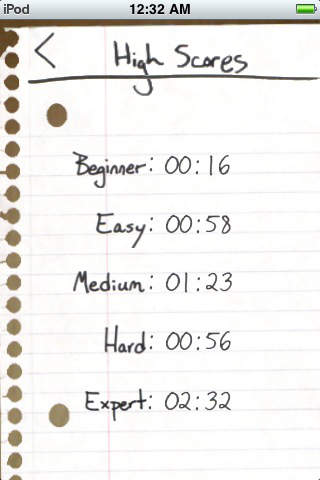 iPod 12:32 AM
High Scores
Beginner: 00:16
Easy: 00:58
Medium: 01:23
Hard: 00:56
Expert: 02:32